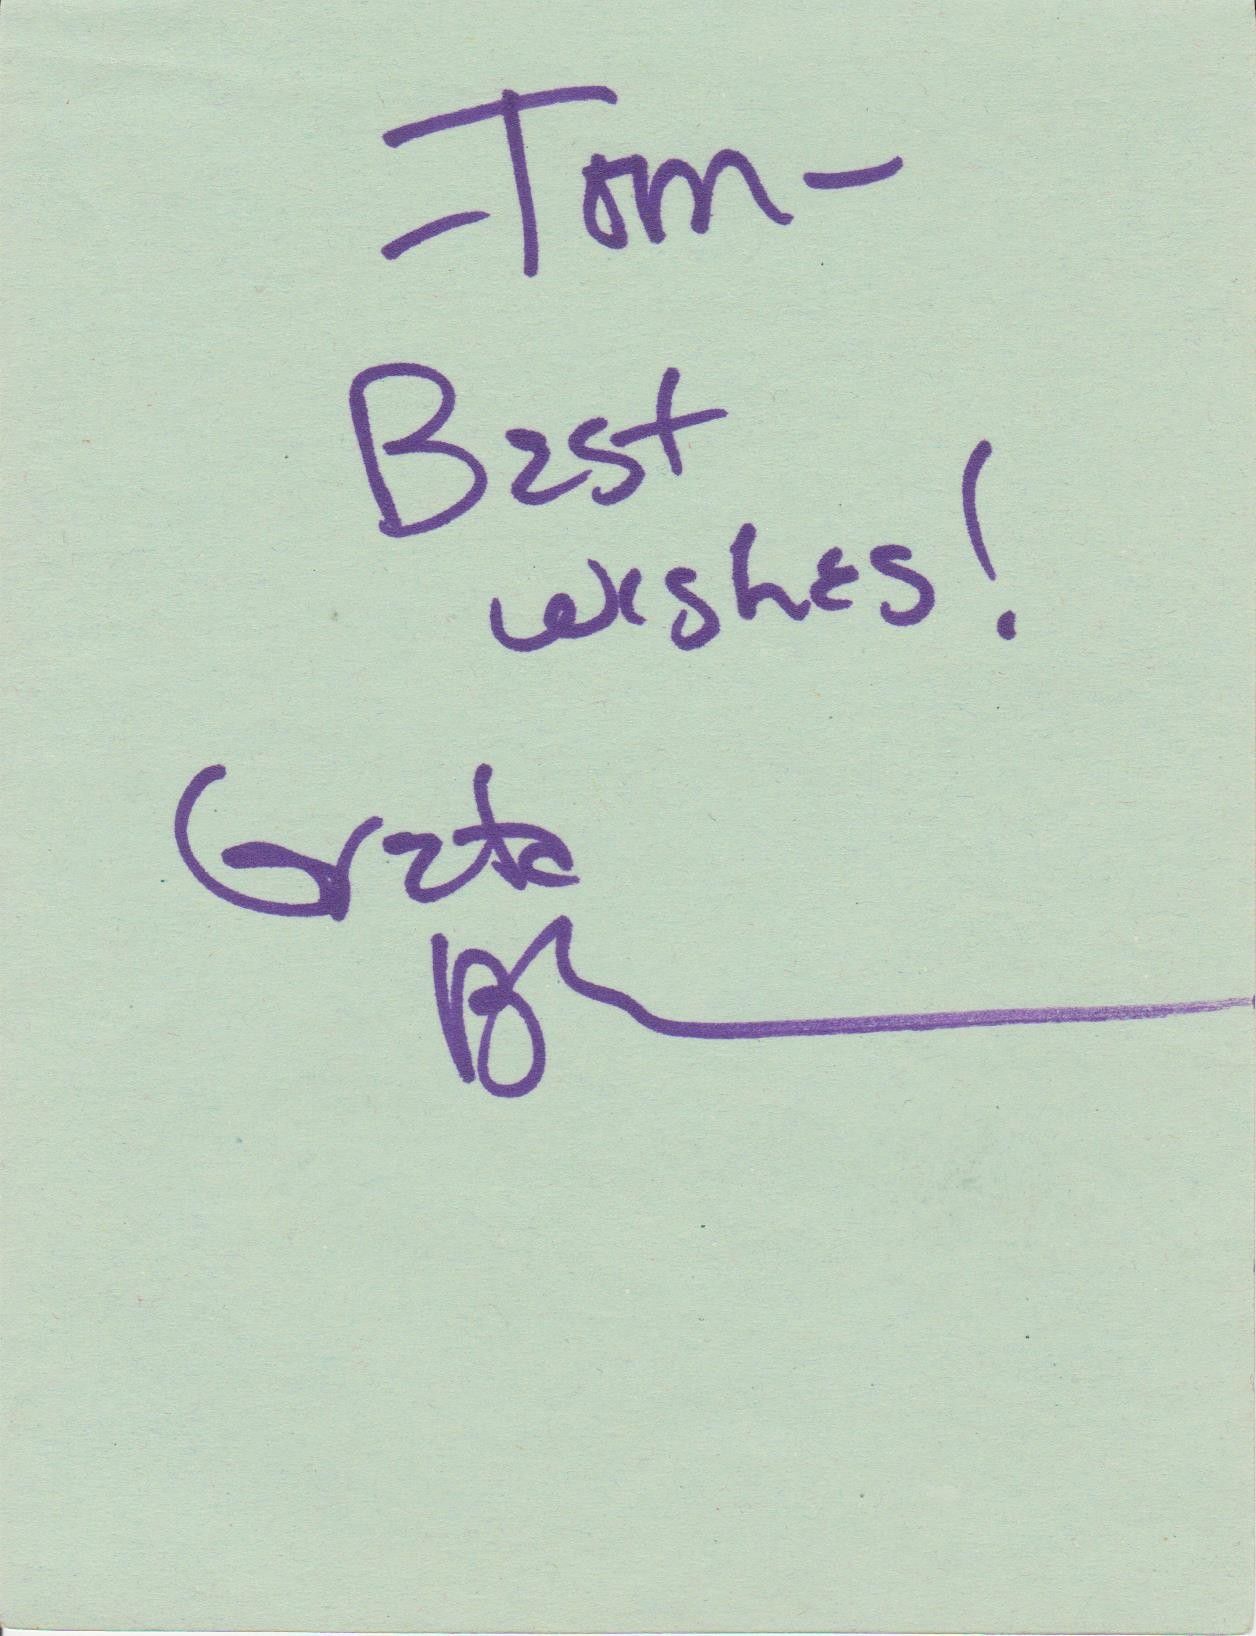 -Tom-
Best
wishes!
Greta
B